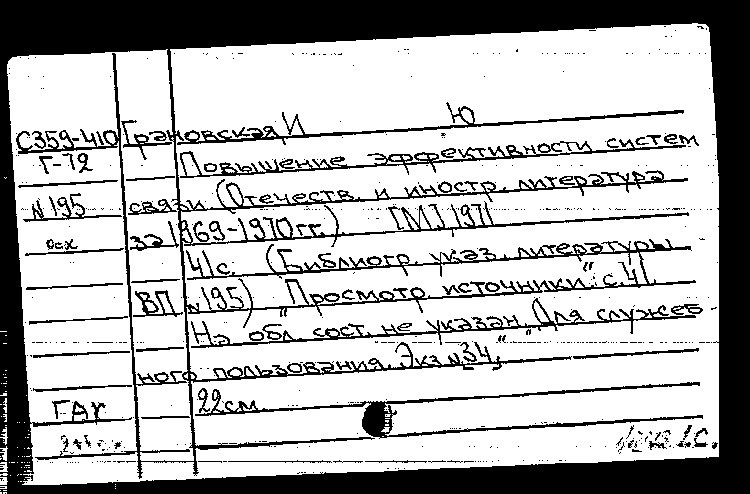 С359-410 Грановская, И Ю
Г-72 Повышение эффективности систем
N195 связи (Отечеств. и иностр. литература
за 1969-1970гг.) [М] 1971
41с. (Библиогр. указ. литературы
ВП N195) "Просмотр. источники": с. 41.
На обл. сост. не указан. "Для служеб-
ного пользования. Экз. N34,"
22см.
ГАУ